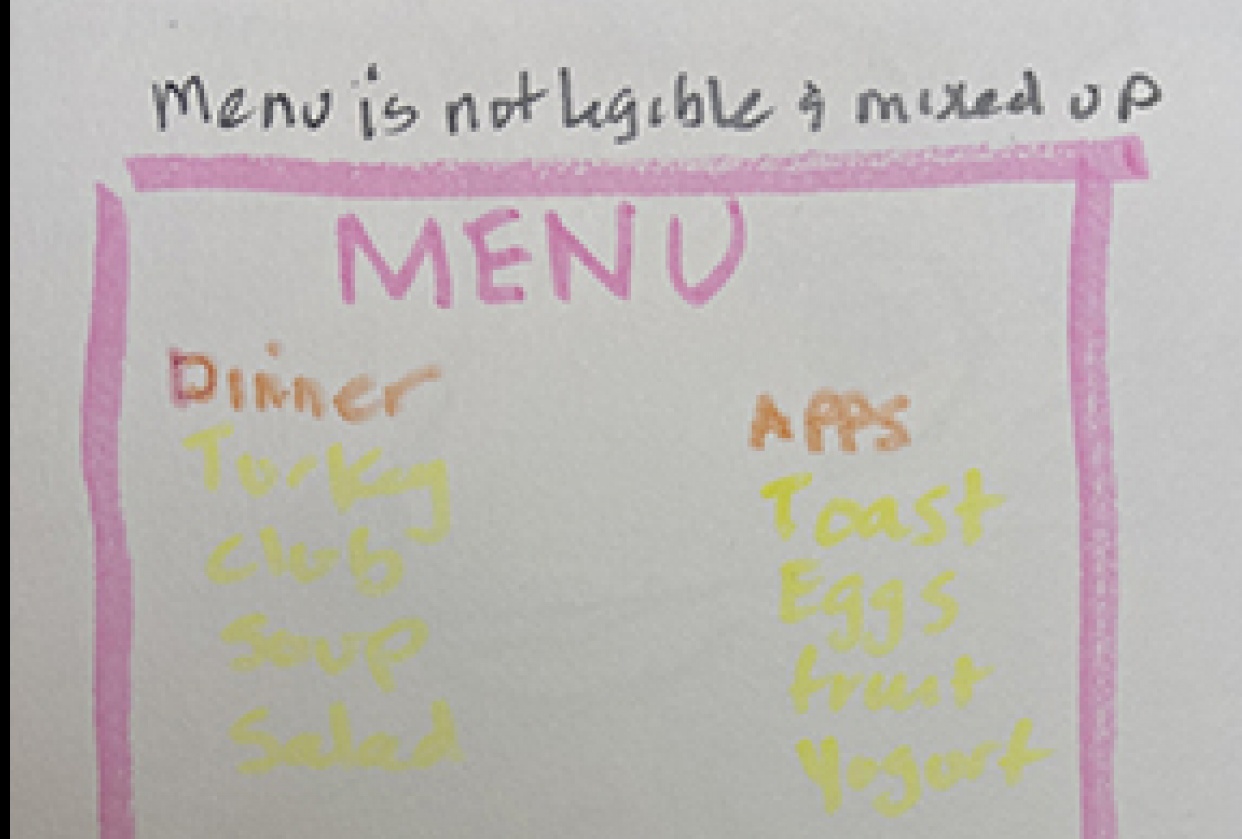 Menu is not legible & mixed up
MENU
Dinner
Turkey
Club
Soup
Salad
APPS
Toast
Eggs
fruit
Yogurt